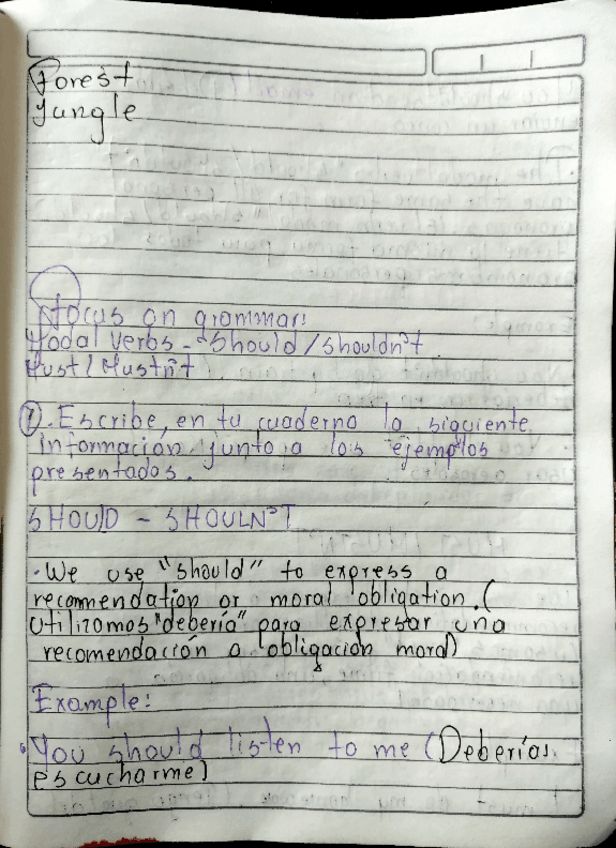 Forest
Jungle
Focus on grammar:
Modal verbs - "Should / shouldn't
Must / Mustn't
1. Escribe, en tu cuaderno la siguiente
información junto a los ejemplos
presentados.
SHOULD - SHOULN'T
• We use "should" to express a
recommendation or moral obligation. (
Utilizamos "debería" para expresar una
recomendación o obligación moral)
Example:
• You should listen to me (Deberías
escucharme)